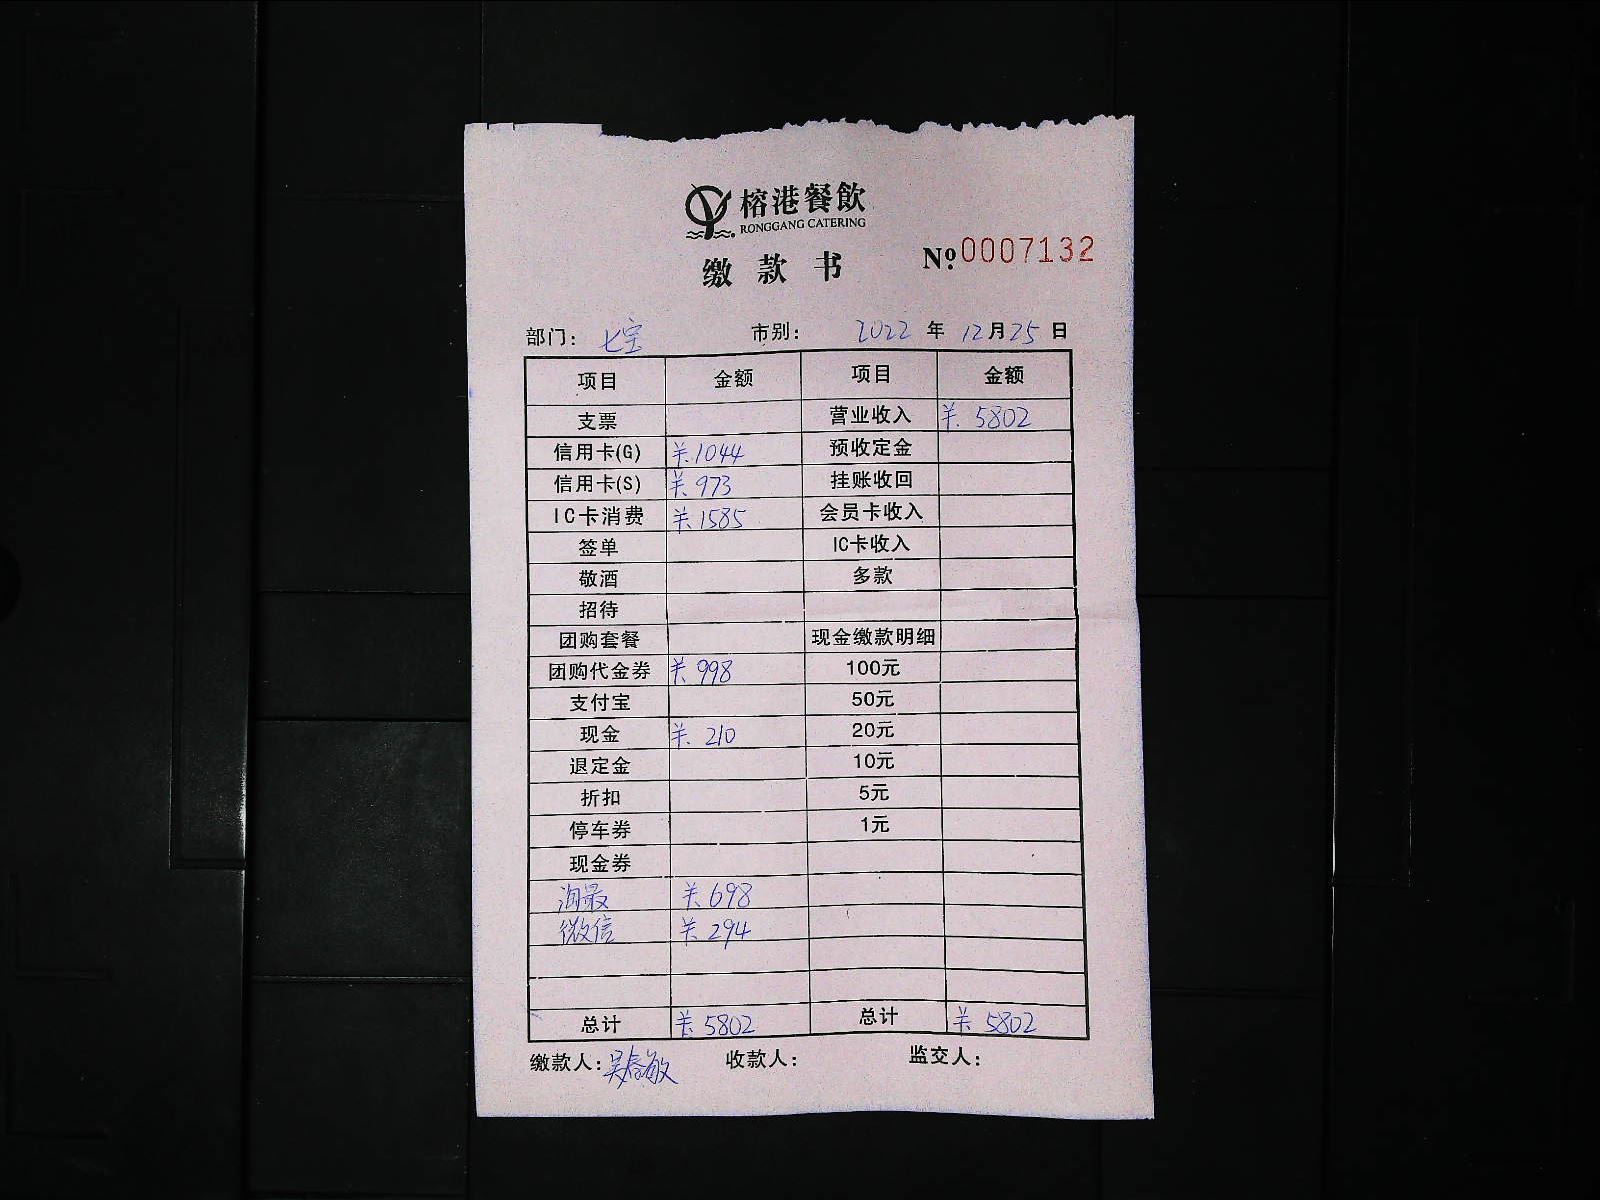 榕港餐飲
RONGGANG CATERING
缴款书 №0007132
部门: 七宝 市别: 2022年12月25日
项目 金额 项目 金额
支票 营业收入 ¥.5802
信用卡(G) ¥.1044 预收定金
信用卡(S) ¥.973 挂账收回
IC卡消费 ¥.1585 会员卡收入
签单 IC卡收入
敬酒 多款
招待
团购套餐 现金缴款明细
团购代金券 ¥.998 100元
支付宝 50元
现金 ¥.210 20元
退定金 10元
折扣 5元
停车券 1元
现金券
¥.698
微信 ¥.294
总计 ¥.5802 总计 ¥.5802
缴款人:吴春敏 收款人: 监交人: